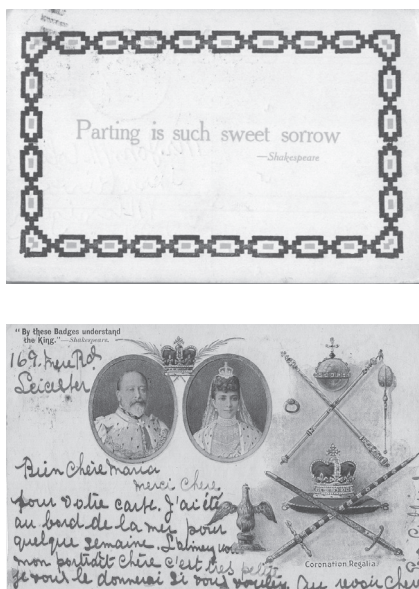 Parting is such sweet sorrow
—Shakespeare
"By these Badges understand
the King."—Shakespeare.
169. Mere Rd.
Leicester
Bien Chère Maria
merci Chère
pour votre carte. J'ai été
au bord de la mer pour
quelque semaine.
mon portrait chère c'est très petit
je vous le donnerai si vous voulez. Au revoir
Coronation Regalia